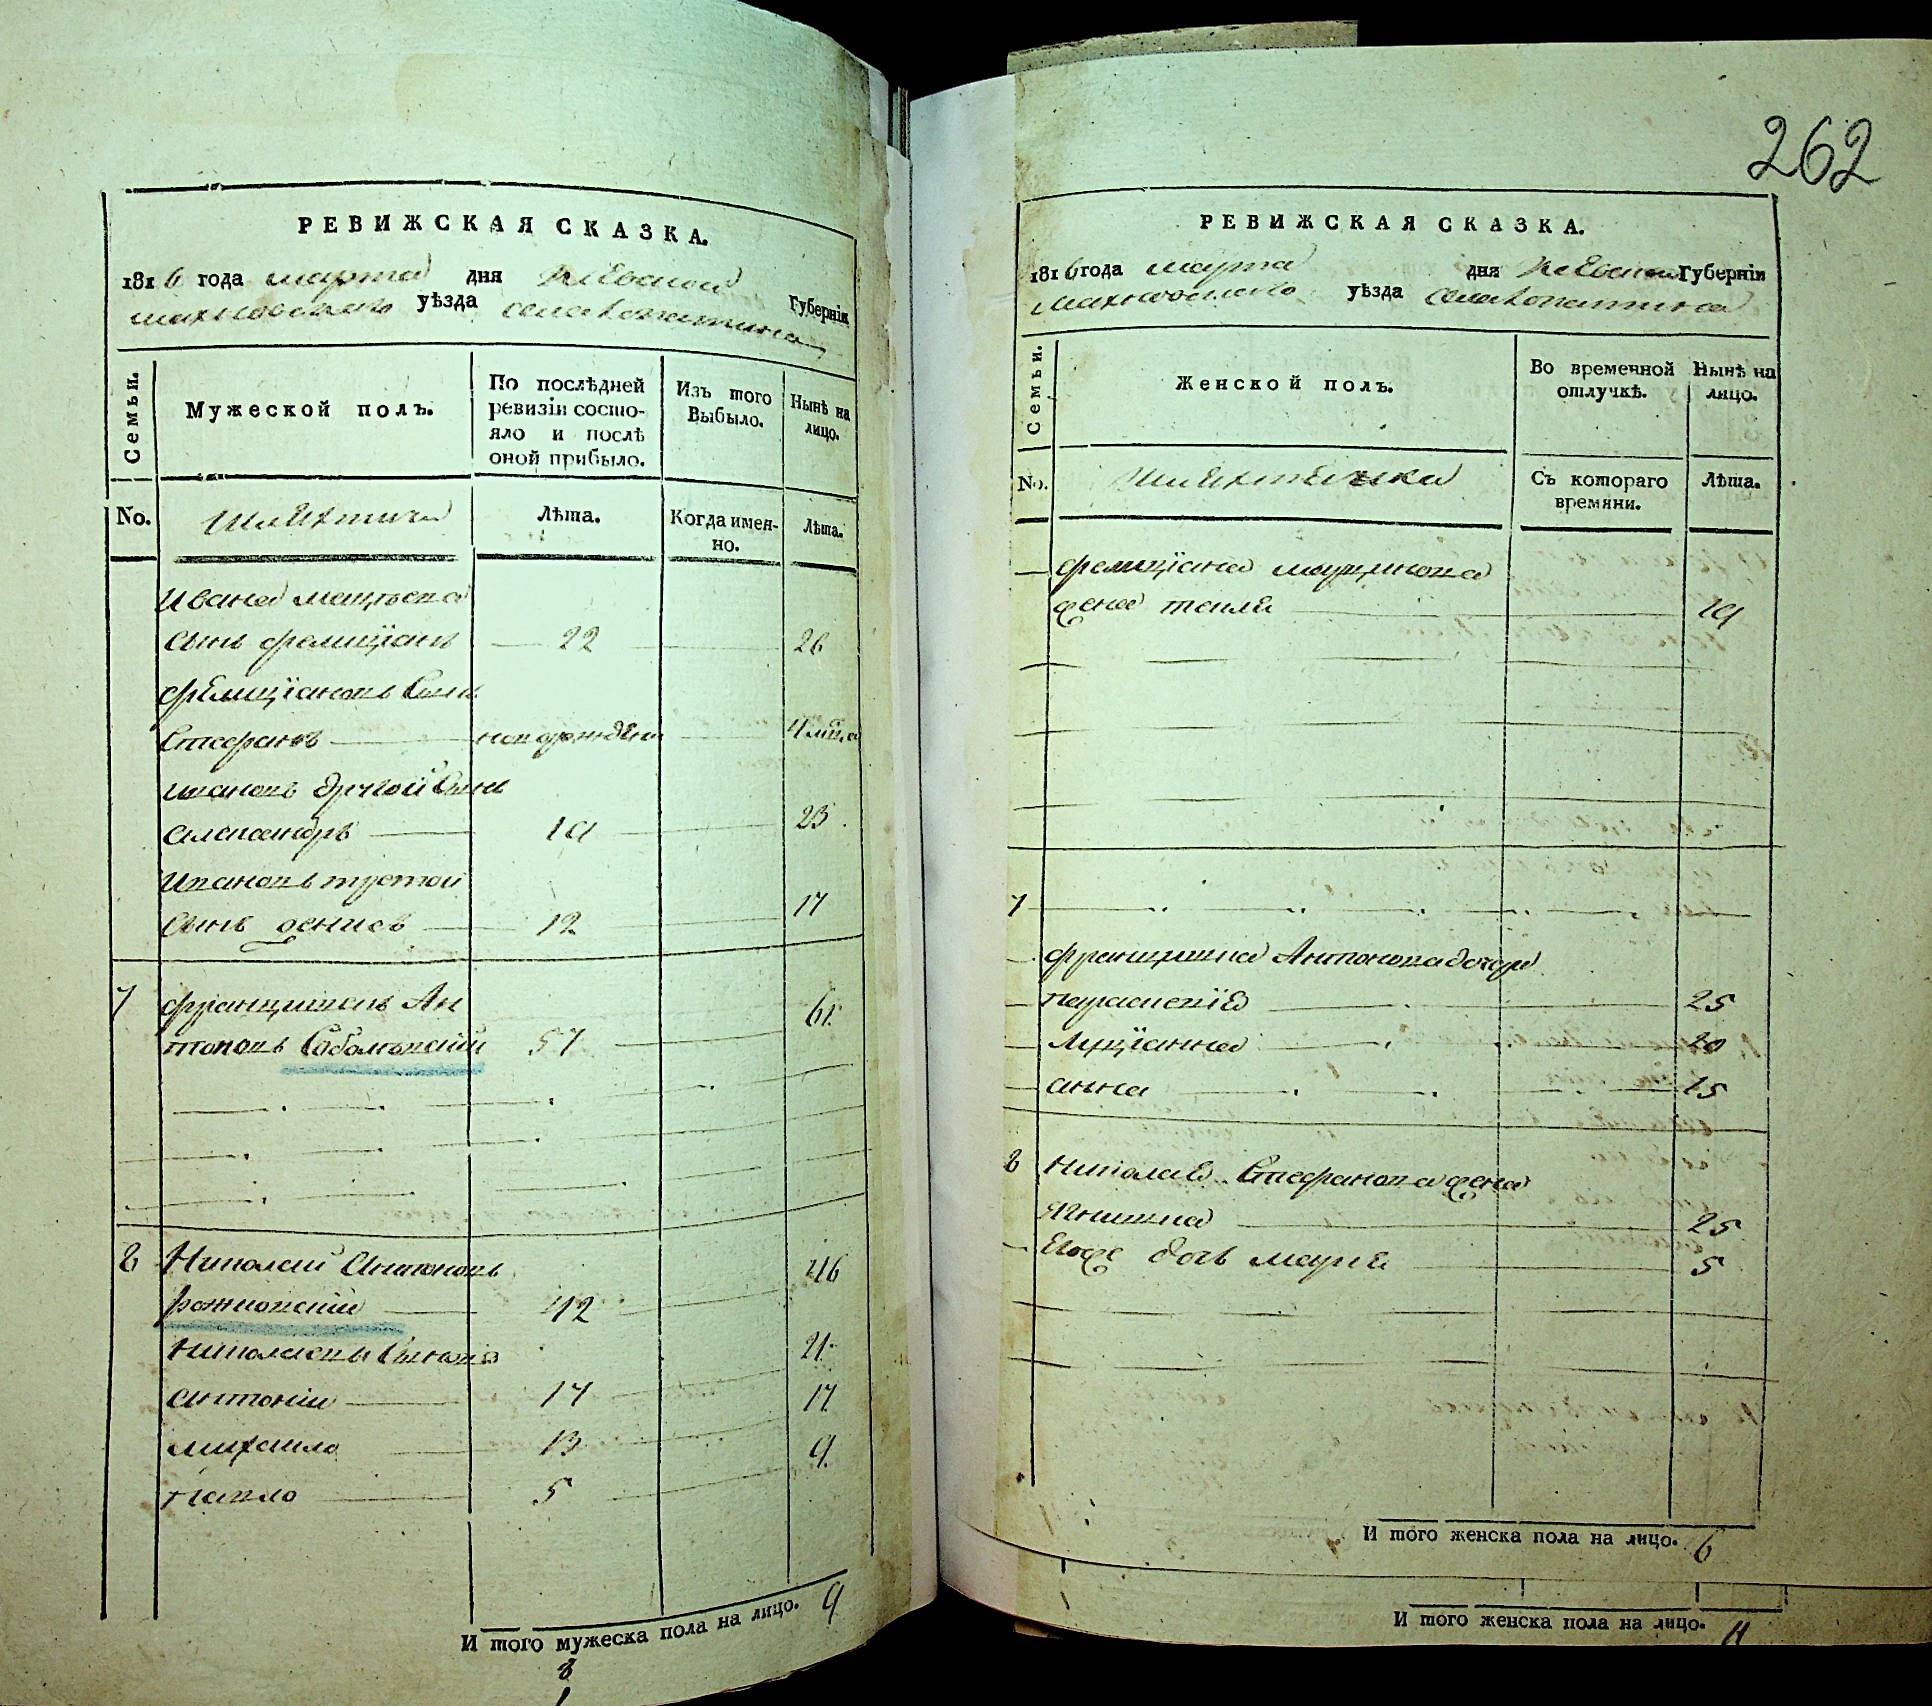 РЕВИЖСКАЯ СКАЗКА.
1816 года марта дня Киевской Губернїи
махновского уѣзда села Лопатина
Семьи.
Мужеской полъ.
По послѣдней ревизїи состо-
яло и послѣ
оной прибыло.
Изъ того
Выбыло.
Нынѣ на
лицо.
No.
Шляхтичи
Лѣта.
Когда имен-
но.
Лѣта.
Ивана
сынъ фелицїанъ 22 26
фелицїановъ сынъ
Стефанъ новорожденъ 4
ивановъ другой сынъ
александръ 19 23
Ивановъ третой
сынъ денисъ 12 17
7 францишекъ Ан
тоновъ 57 61
8 Николай Антоновъ
42 46
Николаевы сыновя
антонїи 17 21
михаило 13 17
павло 5 9
И того мужеска пола на лицо. 9
8
1
262
РЕВИЖСКАЯ СКАЗКА.
1816 года марта дня Киевской Губернїи
махновского уѣзда села Лопатина
Семьи.
Женской полъ.
Во временной
отлучкѣ.
Нынѣ на
лицо.
No.
Шляхтянки
Съ котораго
времяни.
Лѣта.
фелицїана
жена текля 19
7
францишка Антонова дочери
параскевїя 25
Луцїанна 20
анна 15
8 Николая Стефанова жена
Ягнишка 25
Егоже дочь марїя 5
И того женска пола на лицо. 6
И того женска пола на лицо. 11